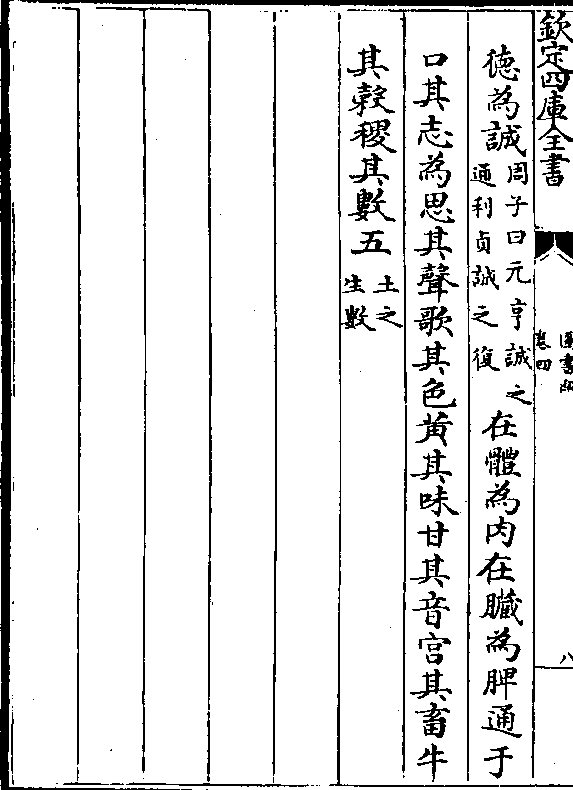 欽定四庫全書
圖書編
卷四
八
德為誠周子曰元亨誠之通利貞誠之復在體為肉在臟為脾通于
口其志為思其聲歌其色黃其味甘其音宮其畜牛
其穀稷其數五土之生數